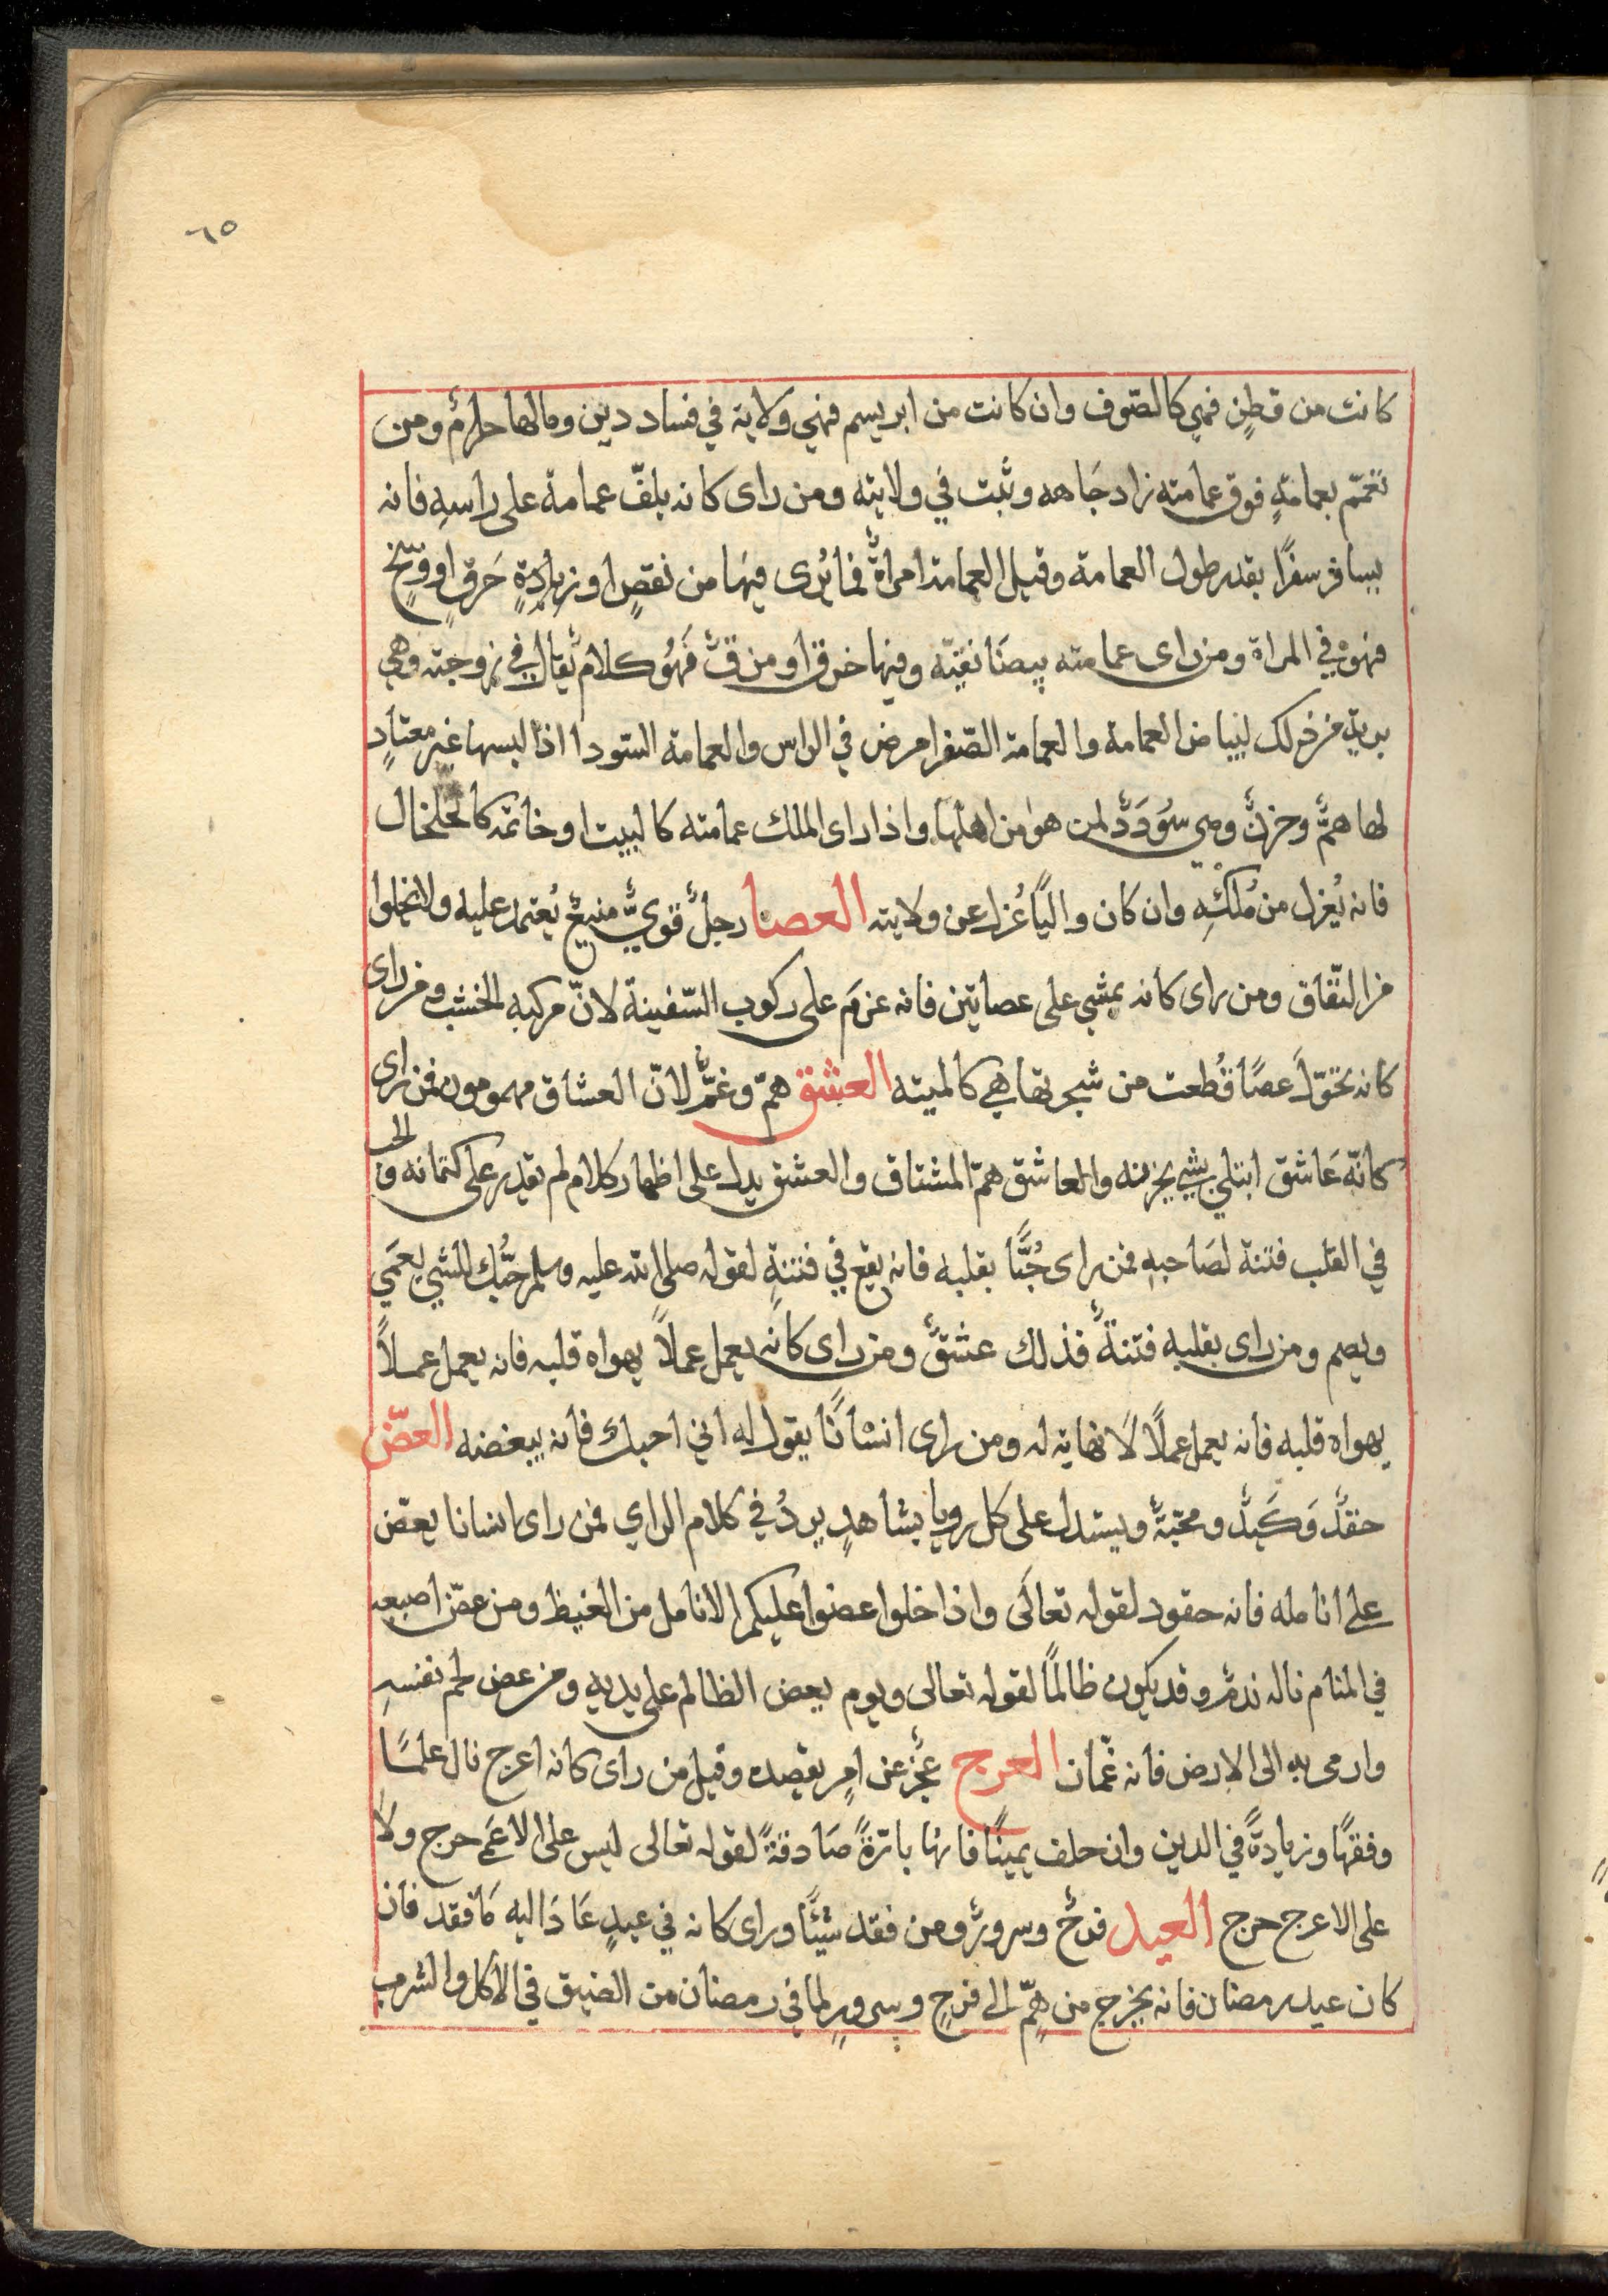 ٦٥
كانت من قطنٍ فهي كالصّوف وان كانت من ابريسم فهي ولاية في فساد دين ومالها حرامٌ ومن
تعمّم بعمامةٍ فوق عمامته زاد جَاهه وثبت في ولايته ومن راى كانه يلفّ عمامة على راسهِ فانه
يسافر سفرًا بقدر طول العمامة وقيل العمامة امراةٌ فما يُرى فيهَا من نقصٍ او زيادةٍ حَرقٍ او وسَخٍ
فهو في المراة ومن راى عمامته بيضَا نقيّه وفيها خرق او مزقٌ فَهوُ كلامٌ يُقال في زوجته وهي
بريةٍ من ذلك لبياض العمامة والعمامة الصّفرا مرض في الراس والعمامة السّودا اذا لبسها غير معتادٍ
لها همٌّ وحزنٌ وهي سُوَددٌ لمن هو من اهلها واذا راى الملك عمامته كالبيت او خاتمه كالخلخال
فانه يُعزل من مُلكهِ وان كان واليًا عُزل عن ولايته العصا رجلٌ قويٌّ منيعٌ يُعتمد عليه ولا يخلوا
من النّفاق ومن راى كانه يمشي على عصايتين فانه عزمَ على ركوب السّفينة لانّ مركبه الخشب ومن راى
كانه تحوّل عصًا قُطعت من شجرتها هي كالميته العشق همّ وغمٌّ لانّ العشاق مهمومون فمن راى
كانّه عَاشق ابتلي بشي يحزنه والعاشق همّ المشتاق والعشق يدل على اظهار كلامٍ لم يقدر على كتمانه والحب
في القلب فتنة لصَاحبهِ فمن راى حُبًّا بقلبه فانه يقع في فتنةٍ لقوله صلى الله عليه وسلم حبُّك للشي يعمَي
ويصم ومن راى بقلبه فتنةٌ فذلك عشقٌ ومن راى كانه يعمل عملاً يهواه قلبه فانه يعمل عملاً
يهواه قلبه فانه يعمل عملاً لا نهاية له ومن راى انسَانًا يقول له اني احبك فانه يبغضه العضّ
حقدٌ وَكَيدٌ ومحبّةٌ ويستدل على كل رويا بشاهدٍ يردُ في كلام الراي فمن راى انسانا يعضّ
على انامله فانه حقود لقوله تعالَى واذا خلوا عضوا عليكم الانامل من الغيظ ومن عضّ اصبعه
في المنام ناله ندمٌ وقد يكون ظالمًا لقوله تعالى ويوم يعض الظالم على يديه ومن عض لحم نفسهِ
وارمى به الى الارض فانه غمّاز العرج عجزٌ عن امرٍ يقصده وقيل من راى كانه اعرج نال علمًا
وفقهًا وزيادةً في الدين وان حلف يمينًا فانها بارّةً صَادقةً لقوله تعالى ليس على الاعمى حرج ولا
على الاعرج حرج العيد فرحٌ وسرورٌ ومن فقد شيئًا وراى كانه في عيدٍ عَادَ اليه مَا فقد فان
كان عيد رمضان فانه يخرج من همٍّ الى فرحٍ وسرورٍ لما في رمضان من الضيق في الاكل والشرب